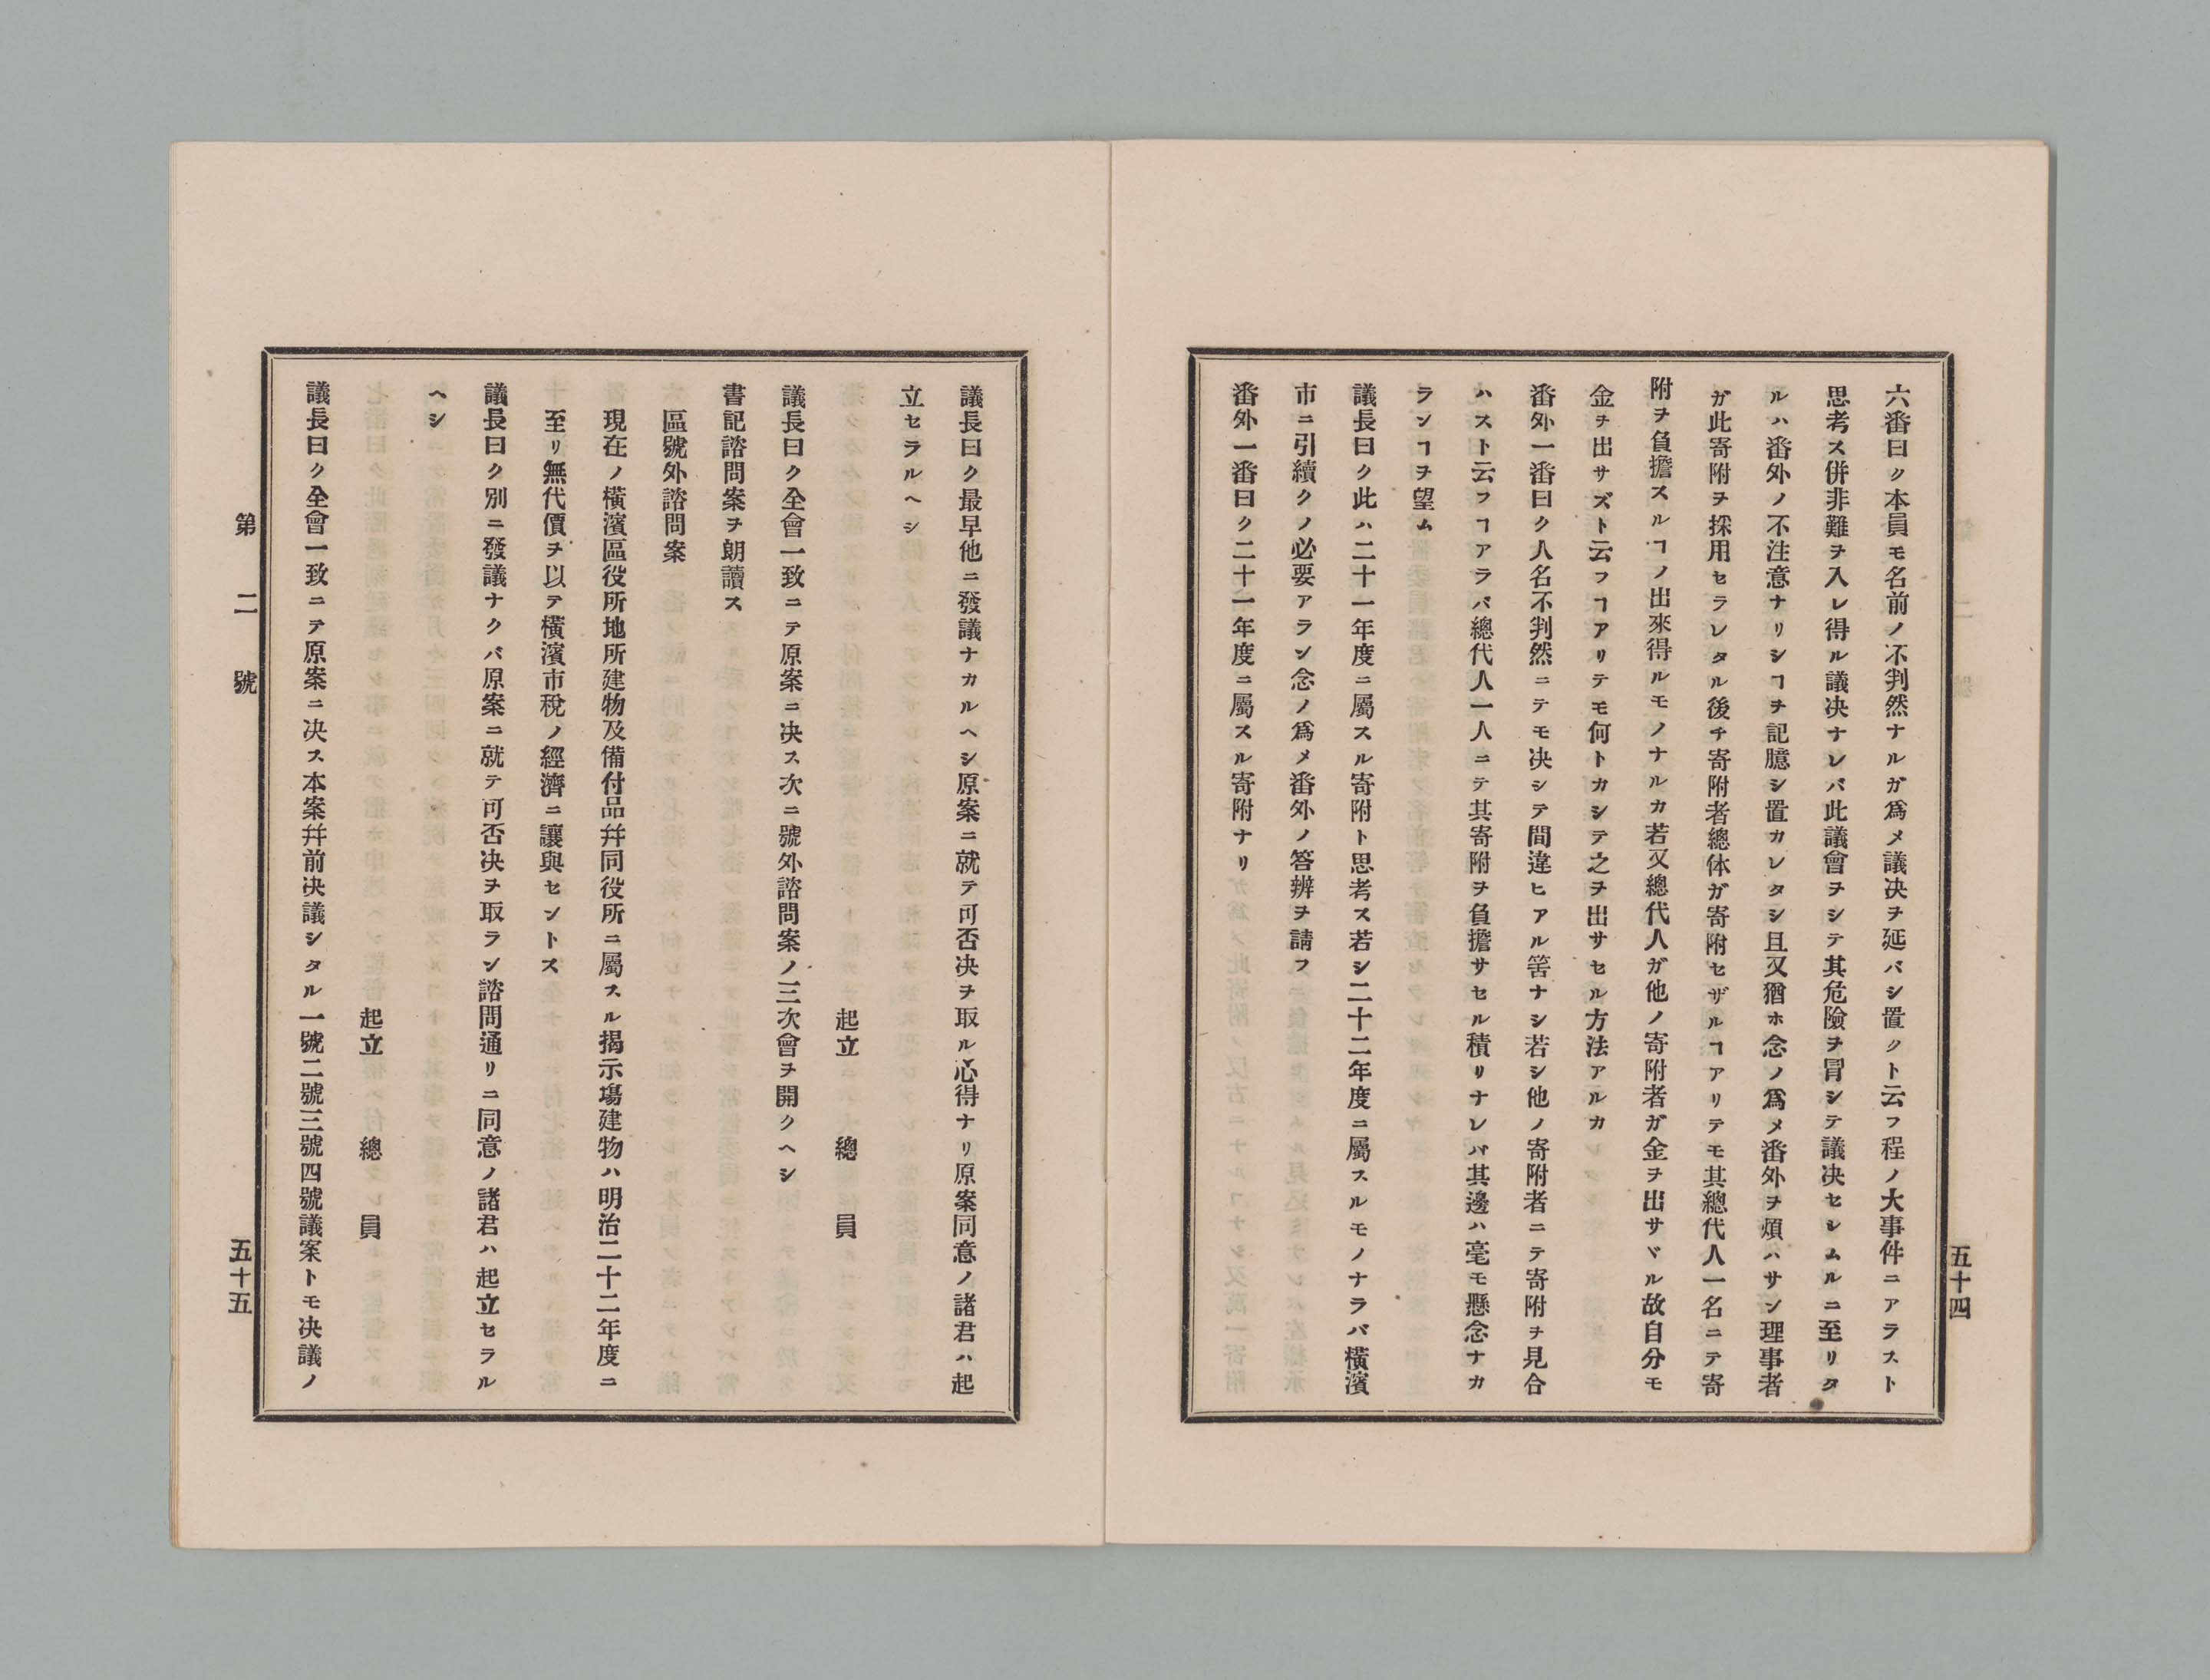 五十四
六番曰ク本員モ名前ノ不判然ナルガ爲メ議决ヲ延バシ置クト云フ程ノ大事件ニアラスト
思考ス併非難ヲ入レ得ル議决ナレバ此議會ヲシテ其危險ヲ冐シテ議决セシムルニ至リタ
ルハ番外ノ不注意ナリシヿヲ記臆シ置カレタシ且又猶ホ念ノ爲メ番外ヲ煩ハサン理事者
ガ此寄附ヲ採用セラレタル後チ寄附者總体ガ寄附セザルヿアリテモ其總代人一名ニテ寄
附ヲ負擔スルヿノ出來得ルモノナルカ若又總代人ガ他ノ寄附者ガ金ヲ出サヾル故自分モ
金ヲ出サズト云フヿアリテモ何トカシテ之ヲ出サセル方法アルカ
番外一番曰ク人名不判然ニテモ决シテ間違ヒアル筈ナシ若シ他ノ寄附者ニテ寄附ヲ見合
ハスト云フヿアラバ總代人一人ニテ其寄附ヲ負擔サセル積リナレバ其邊ハ毫モ懸念ナカ
ランヿヲ望ム
議長曰ク此ハ二十一年度ニ屬スル寄附ト思考ス若シ二十二年度ニ屬スルモノナラバ橫濱
市ニ引續クノ必要アラン念ノ爲メ番外ノ答辨ヲ請フ
番外一番曰ク二十一年度ニ屬スル寄附ナリ
議長曰ク最早他ニ發議ナカルヘシ原案ニ就テ可否决ヲ取ル心得ナリ原案同意ノ諸君ハ起
立セラルヘシ
起立 總員
議長曰ク全會一致ニテ原案ニ决ス次ニ號外諮問案ノ三次會ヲ開クヘシ
書記諮問案ヲ朗讀ス
區號外諮問案
現在ノ橫濱區役所地所建物及備付品幷同役所ニ屬スル揭示塲建物ハ明治二十二年度ニ
至リ無代價ヲ以テ橫濱市稅ノ經濟ニ讓與セントス
議長曰ク別ニ發議ナクバ原案ニ就テ可否决ヲ取ラン諮問通リニ同意ノ諸君ハ起立セラル
ヘシ
起立 總員
議長曰ク全會一致ニテ原案ニ决ス本案幷前决議シタル一號二號三號四號議案トモ决議ノ
第二號 五十五